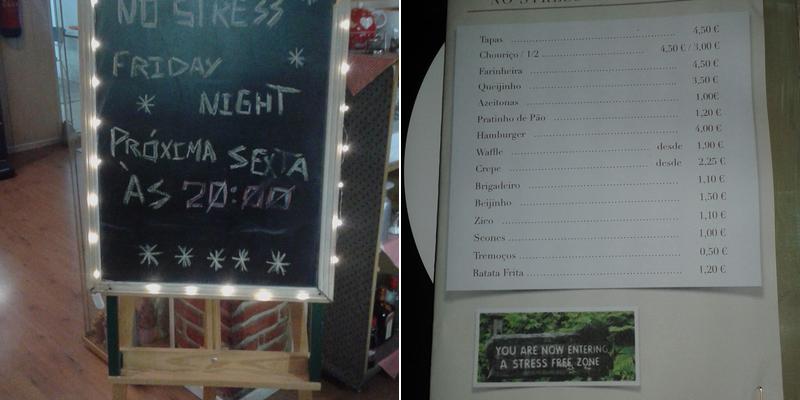 NO STRESS
FRIDAY
NIGHT
PRÓXIMA SEXTA
ÀS 20:00
Tapas 4,50 €
Chouriço / 1/2 4,50 € / 3,00 €
Farinheira 4,50 €
Queijinho 3,50 €
Azeitonas 1,00€
Pratinho de Pão 1,20 €
Hamburger 4,00 €
Waffle desde 1,90 €
Crepe desde 2,25 €
Brigadeiro 1,10 €
Beijinho 1,50 €
Zico 1,10 €
Scones 1,00 €
Tremoços 0,50 €
Batata Frita 1,20 €
YOU ARE NOW ENTERING
A STRESS FREE ZONE